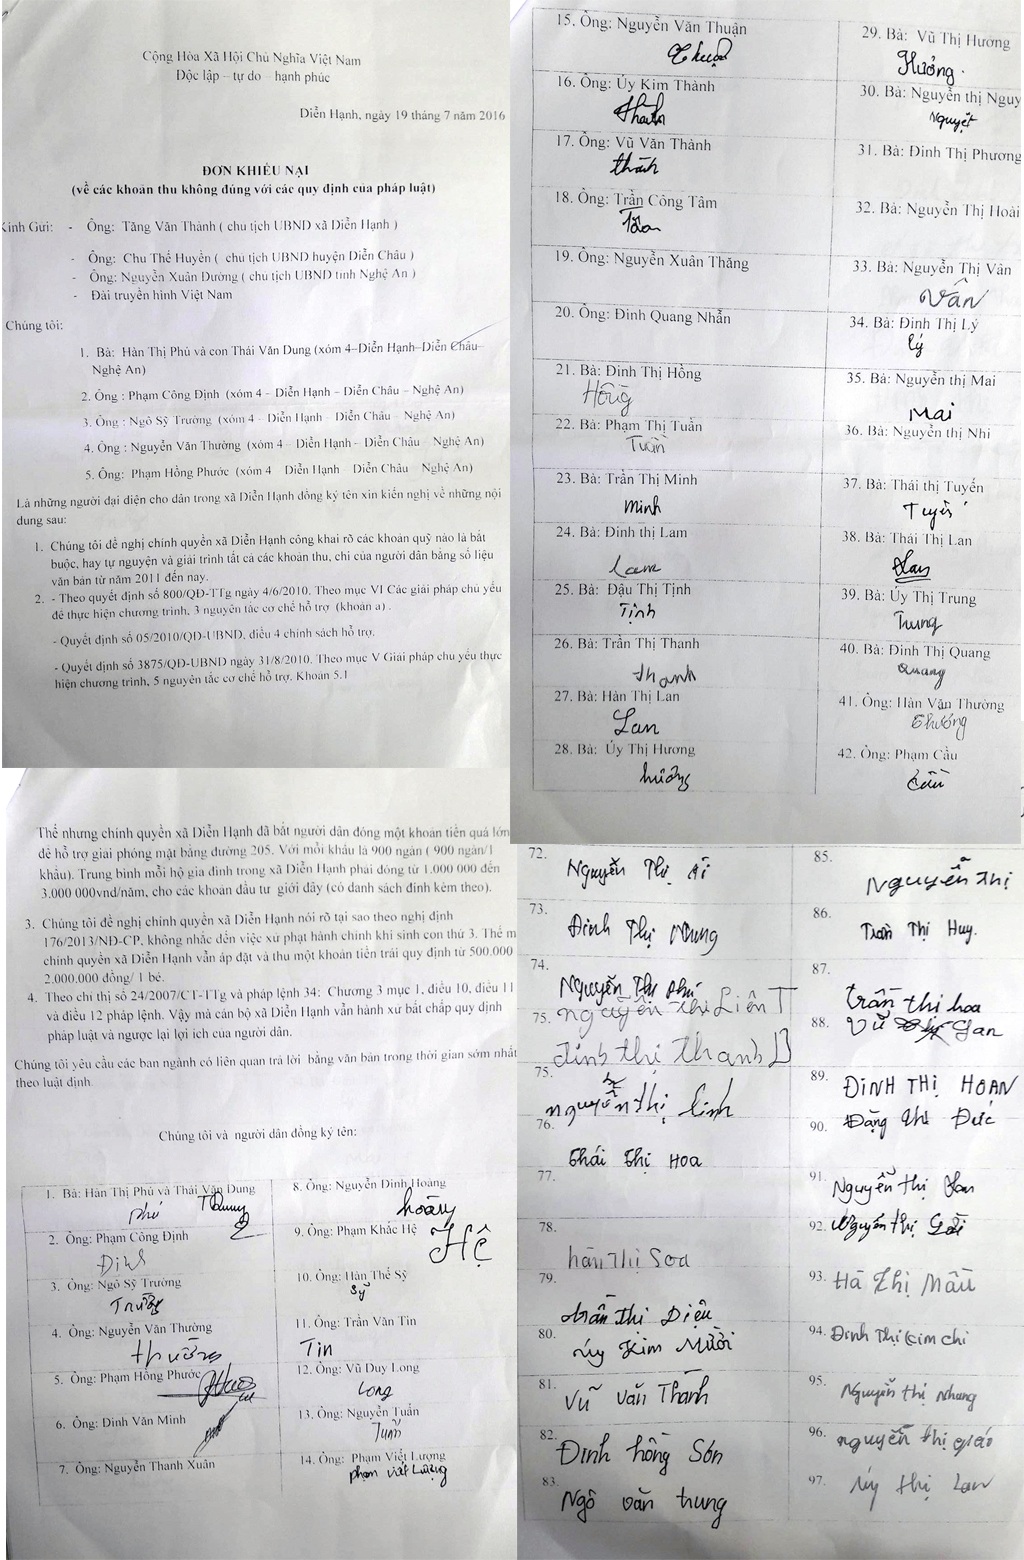 Cộng Hòa Xã Hội Chủ Nghĩa Việt Nam
Độc lập – tự do – hạnh phúc
Diễn Hạnh, ngày 19 tháng 7 năm 2016
ĐƠN KHIẾU NẠI
(về các khoản thu không đúng với các quy định của pháp luật)
Kính Gửi: - Ông: Tăng Văn Thành ( chu tịch UBND xã Diễn Hạnh )
- Ông: Chu Thế Huyền ( chu tịch UBND huyện Diễn Châu )
- Ông: Nguyễn Xuân Dường ( chu tịch UBND tỉnh Nghệ An )
- Đài truyền hình Việt Nam
Chúng tôi:
1. Bà: Hàn Thị Phú và con Thái Văn Dung (xóm 4–Diễn Hạnh–Diễn Châu–
Nghệ An)
2. Ông : Phạm Công Định (xóm 4 – Diễn Hạnh – Diễn Châu – Nghệ An)
3. Ông : Ngô Sỹ Trường (xóm 4 – Diễn Hạnh – Diễn Châu – Nghệ An)
4. Ông : Nguyễn Văn Thường (xóm 4 – Diễn Hạnh – Diễn Châu – Nghệ An)
5. Ông: Phạm Hồng Phước (xóm 4 Diễn Hạnh – Diễn Châu Nghệ An)
Là những người đại diện cho dân trong xã Diễn Hạnh đồng ký tên xin kiến nghị về những nội
dung sau:
1. Chúng tôi đề nghị chính quyền xã Diễn Hạnh công khai rõ các khoản quỹ nào là bắt
buộc, hay tự nguyện và giải trình tất cả các khoản thu, chi của người dân bằng số liệu
văn bản từ năm 2011 đến nay.
2. - Theo quyết định số 800/QĐ-TTg ngày 4/6/2010. Theo mục VI Các giải pháp chủ yếu
để thực hiện chương trình, 3 nguyên tắc cơ chế hỗ trợ (khoản a) .
- Quyết định số 05/2010/QĐ-UBND, điều 4 chính sách hỗ trợ.
- Quyết định số 3875/QĐ-UBND ngày 31/8/2010. Theo mục V Giải pháp chu yếu thực
hiện chương trình, 5 nguyên tắc cơ chế hỗ trợ. Khoản 5.1
Thế nhưng chính quyền xã Diễn Hạnh đã bắt người dân đóng một khoản tiền quá lớn
để hỗ trợ giải phóng mặt bằng đường 205. Với mỗi khẩu là 900 ngàn ( 900 ngàn/1
khẩu). Trung bình mỗi hộ gia đình trong xã Diễn Hạnh phải đóng từ 1.000 000 đến
3.000 000vnd/năm, cho các khoản đầu tư giới đây (có danh sách đính kèm theo).
3. Chúng tôi đề nghị chính quyền xã Diễn Hạnh nói rõ tại sao theo nghị định
176/2013/NĐ-CP, không nhắc đến việc xử phạt hành chính khi sinh con thứ 3. Thế m
chính quyền xã Diễn Hạnh vẫn áp đặt và thu một khoản tiền trái quy định từ 500.000
2.000.000 đồng/ 1 bé.
4. Theo chỉ thị số 24/2007/CT-TTg và pháp lệnh 34: Chương 3 mục 1, điều 10, điều 11
và điều 12 pháp lệnh. Vậy mà cán bộ xã Diễn Hạnh vẫn hành xử bất chấp quy định
pháp luật và ngược lại lợi ích của người dân.
Chúng tôi yêu cầu các ban ngành có liên quan trả lời bằng văn bản trong thời gian sớm nhất
theo luật định
Chúng tôi và người dân đồng ký tên:
1. Bà: Hàn Thị Phú và Thái Văn Dung
Phú Dung
2. Ông: Phạm Công Định
Định
3. Ông: Ngô Sỹ Trường
Trường
4. Ông: Nguyễn Văn Thường
thường
5. Ông: Phạm Hồng Phước
6. Ông: Đinh Văn Minh
7. Ông: Nguyễn Thanh Xuân
8. Ông: Nguyễn Đình Hoàng
hoàng
9. Ông: Phạm Khắc Hệ
Hệ
10. Ông: Hàn Thế Sỹ
Sỹ
11. Ông: Trần Văn Tin
Tin
12. Ông: Vũ Duy Long
Long
13. Ông: Nguyễn Tuấn
Tuấn
14. Ông: Phạm Viết Lượng
phạm viết Lượng
15. Ông: Nguyễn Văn Thuận
Thuận
16. Ông: Úy Kim Thành
thành
17. Ông: Vũ Văn Thành
thành
18. Ông: Trần Công Tâm
Tâm
19. Ông: Nguyễn Xuân Thăng
20. Ông: Đinh Quang Nhẫn
21. Bà: Đinh Thị Hồng
Hồng
22. Bà: Phạm Thị Tuần
Tuần
23. Bà: Trần Thị Minh
Minh
24. Bà: Đinh thị Lam
Lam
25. Bà: Đậu Thị Tịnh
Tịnh
26. Bà: Trần Thị Thanh
thanh
27. Bà: Hàn Thị Lan
Lan
28. Bà: Úy Thị Hương
hương
29. Bà: Vũ Thị Hương
Hương.
30. Bà: Nguyễn thị Nguy
Nguyệt
31. Bà: Đinh Thị Phương
32. Bà: Nguyễn Thị Hoài
33. Bà: Nguyễn Thị Vân
Vân
34. Bà: Đinh Thị Lý
lý
35. Bà: Nguyễn thị Mai
Mai
36. Bà: Nguyễn thị Nhi
37. Bà: Thái thị Tuyến
Tuyến
38. Bà: Thái Thị Lan
Lan
39. Bà: Úy Thị Trung
Trung
40. Bà: Đinh Thị Quang
Quang
41. Ông: Hàn Văn Thường
Thường
42. Ông: Phạm Cầu
Cầu
72. Nguyễn Thị
73. Đinh Thị Nhung
74. Nguyễn Thị Phú
75. nguyễn thị Liên T
đinh thị thanh B
75. nguyễn thị Linh
76. Thái Thị Hoa
77.
78. hàn Thị Soa
79. trần Thị Diệu
80. úy Kim Mười
81. Vũ Văn Thành
82. Đinh hồng Sơn
83. Ngô văn trung
85. Nguyễn Thị
86. Trần Thị Huy.
87. trần thị hoa
88. Vũ Lan
89. ĐINH THỊ HOAN
90. Đặng thị Đức
91. Nguyễn thị Lan
92. Nguyễn thị
93. Hà Thị Mầu
94. Đinh Thị kim chi
95. Nguyễn thị Nhung
96. nguyễn thị giáo
97. úy thị Lan